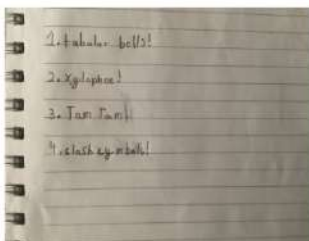 1. tubular bells!
2. xylophone!
3. Tam Tam!
4. slash cymbals!